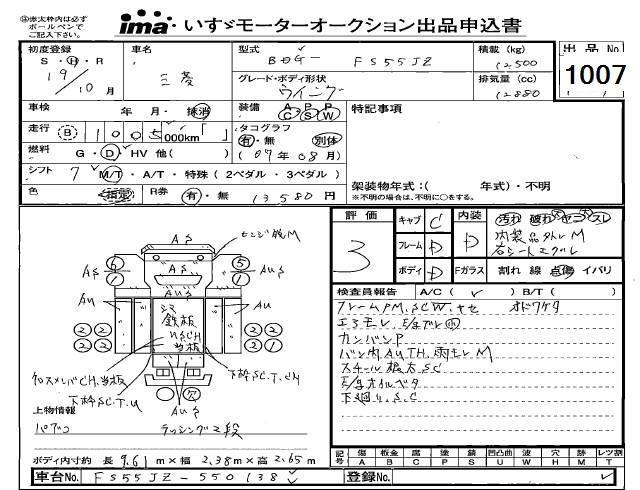 ㊟赤太枠内は必ず
ボールペンで
ご記入下さい。
ima いすゞモーターオークション出品申込書
初度登録
S・H・R
19年
10月
車名
三菱
型式
BDG- FS55JZ
グレード・ボディ形状
ウイング
積載 (kg)
12500
排気量 (cc)
12880
出品No
1007
車検 年 月・抹消
走行 B 1005,000km
燃料 G・D・HV 他( )
シフト 7 M/T・A/T・特殊(2ペダル・3ペダル)
色 指定 R券 有・無 13580円
装備 A P P
C S W
タコグラフ
有・無 別体
(07年08月)
特記事項
架装物年式:( 年式)・不明
※不明の場合は、不明に○をする。
評価
3
キャブ C
フレーム D
ボディ D
内装
D
Fガラス
汚れ 破れ ヤニ スレ
内装品外レM
右シートエグレ
割れ 線 点傷 イバリ
検査員報告 A/C( ✓ ) B/T( )
フレームPM.SCW.ヤセ
エアモレ.
カンバンP
バン内AUTH.雨モレM
スチール根太SC
E/gオイルベタ
下廻り.S.C
AS
センジ脱M
6
1
AS
5
1
AUS
AUS
AU
AU
鉄板
USCH
当板
2 2
2 2
2 2
2 1
クロスメンバCH.当板
下枠SC.T.U
下枠SC.T.CH
穴
AUS
上物情報
パブコ
ラッシング2段
ボディ内寸約 長 9.61 m×幅 2.38 m×高 2.65 m
記号
傷 A
板金 B
腐 C
塗 P
錆 S
凹凸曲 U
波 W
穴 H
跡 M
レツ割 T
車台No. FS55JZ-550138
登録No.